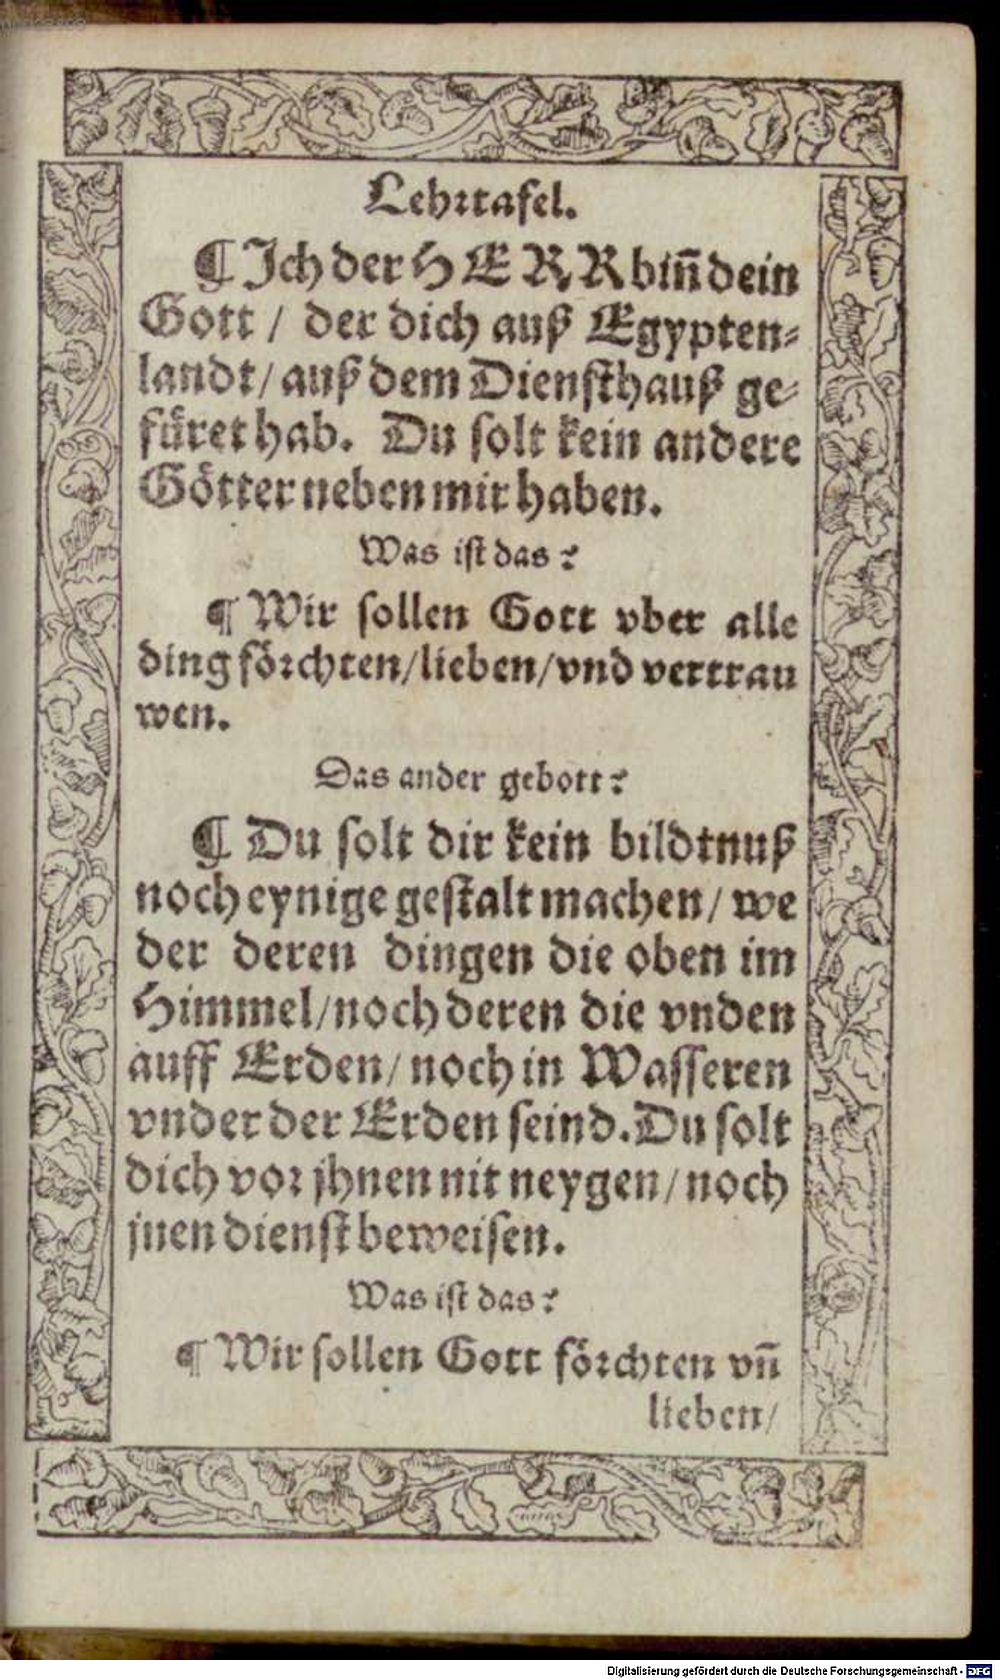 Lehrtafel.
¶ Ich der HERR biñ dein
Gott / der dich auß Egypten-
landt / auß dem Diensthauß ge-
fůret hab. Du solt kein andere
Gôtter neben mir haben.
Was ist das?
¶ Wir sollen Gott vber alle
ding fôrchten / lieben / vnd vertrau
wen.
Das ander gebott?
¶ Du solt dir kein bildtnuß
noch eynige gestalt machen / we
der deren dingen die oben im
Himmel / noch deren die vnden
auff Erden / noch in Wasseren
vnder der Erden seind. Du solt
dich vor jhnen nit neygen / noch
jnen dienst beweisen.
Was ist das?
¶ Wir sollen Gott fôrchten vñ
lieben /
Digitalisierung gefördert durch die Deutsche Forschungsgemeinschaft - DFG